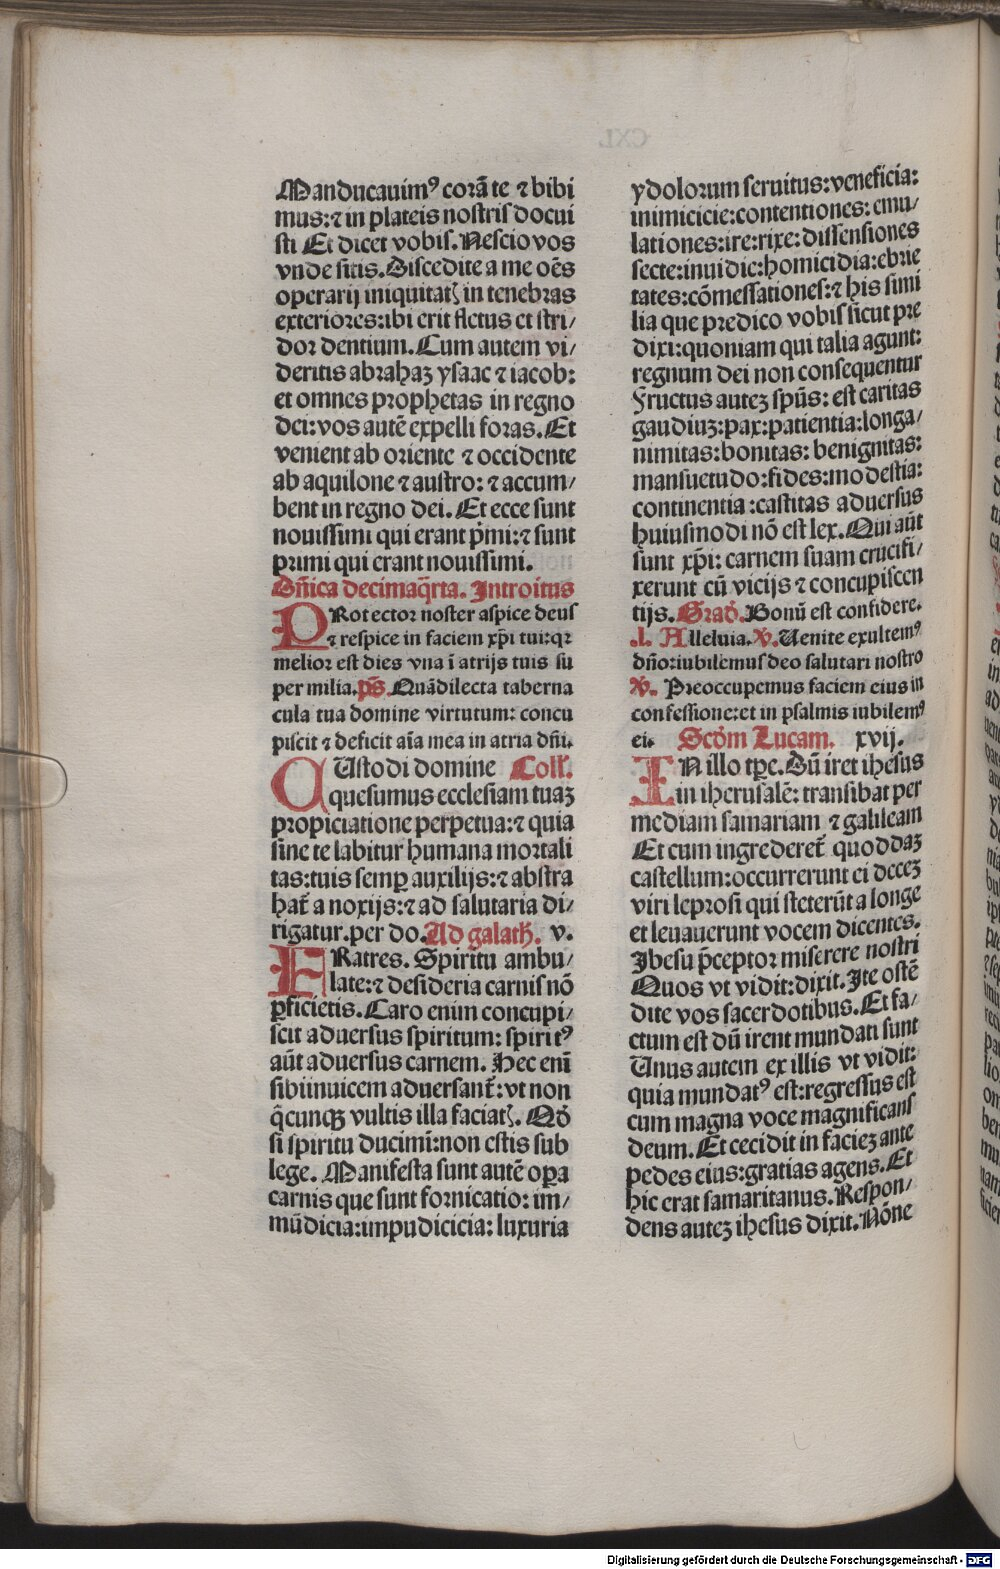 Manducauimꝰ corā te ⁊ bibi
mus:⁊ in plateis nostris docui
sti Et dicet vobis. Nescio vos
vnde sitis. Discedite a me oēs
operarij iniquitatꝭ in tenebras
exteriores:ibi erit fletus et stri/
dor dentium. Cum autem vi/
deritis abrahaꝫ ysaac ⁊ iacob:
et omnes prophetas in regno
dei:vos autē expelli foras. Et
venient ab oriente ⁊ occidente
ab aquilone ⁊ austro: ⁊ accum/
bent in regno dei. Et ecce sunt
nouissimi qui erant p̄mi:⁊ sunt
primi qui erant nouissimi.
Dn̄ica decimaq̄rta. Introitus
PRotector noster aspice deus
⁊ respice in faciem xp̄i tui:qꝛ
melior est dies vna ī atrijs tuis su
per milia. ps̄. Quādilecta taberna
cula tua domine virtutum: concu
piscit ⁊ deficit aīa mea in atria dn̄i.
CUstodi domine Coll'.
quesumus ecclesiam tuaꝫ
propiciatione perpetua:⁊ quia
sine te labitur humana mortali
tas:tuis semꝑ auxilijs:⁊ abstra
hat̄ a noxijs:⁊ ad salutaria di/
rigatur.per do. Ad galatħ. v.
FRatres. Spiritu ambu/
late:⁊ desideria carnis nō
ꝑficietis. Caro enim concupi/
scit aduersus spiritum: spiritꝰ
aūt aduersus carnem. Hec enī
sibiinuicem aduersant̄:vt non
q̄cunqꝫ vultis illa faciatꝭ. Qd̓
si spiritu ducimī:non estis sub
lege. Manifesta sunt autē oꝑa
carnis que sunt fornicatio: im/
mūdicia:impudicicia: luxuria
ydolorum seruitus:veneficia:
inimicicie:contentiones: emu/
lationes:ire:rixe: dissensiones
secte:inuidie:homicidia:ebrie
tates:cōmessationes:⁊ his simi
lia que predico vobis sicut pre
dixi:quoniam qui talia agunt:
regnum dei non consequentur
Fructus auteꝫ spūs: est caritas
gaudiuꝫ:pax:patientia:longa/
nimitas: bonitas: benignitas:
mansuetudo:fides:modestia:
continentia:castitas aduersus
huiusmodi nō est lex. Qui aūt
sunt xp̄i: carnem suam crucifi/
xerunt cū vicijs ⁊ concupiscen
tijs. Grad̓. Bonū est confidere.
.l. Alleluia. ꝟ. Uenite exultemꝰ
dn̄o:iubilemus deo salutari nostro
ꝟ. Preoccupemus faciem eius in
confessione:et in psalmis iubilemꝰ
ei. Scd̓m Lucam. xvij.
IN illo tꝑe. Dū iret ihesus
in iherusalē: transibat per
mediam samariam ⁊ galileam
Et cum ingrederet̄ quoddaꝫ
castellum:occurrerunt ei deceꝫ
viri leprosi qui steterūt a longe
et leuauerunt vocem dicentes.
Ihesu p̄ceptor miserere nostri
Quos vt vidit:dixit. Ite ostē
dite vos sacerdotibus. Et fa/
ctum est dū irent mundati sunt
Unus autem ex illis vt vidit:
quia mundatꝰ est:regressus est
cum magna voce magnificans
deum. Et cecidit in facieꝫ ante
pedes eius:gratias agens. Et
hic erat samaritanus. Respon/
dens auteꝫ ihesus dixit. Nōne
Digitalisierung gefördert durch die Deutsche Forschungsgemeinschaft - DFG